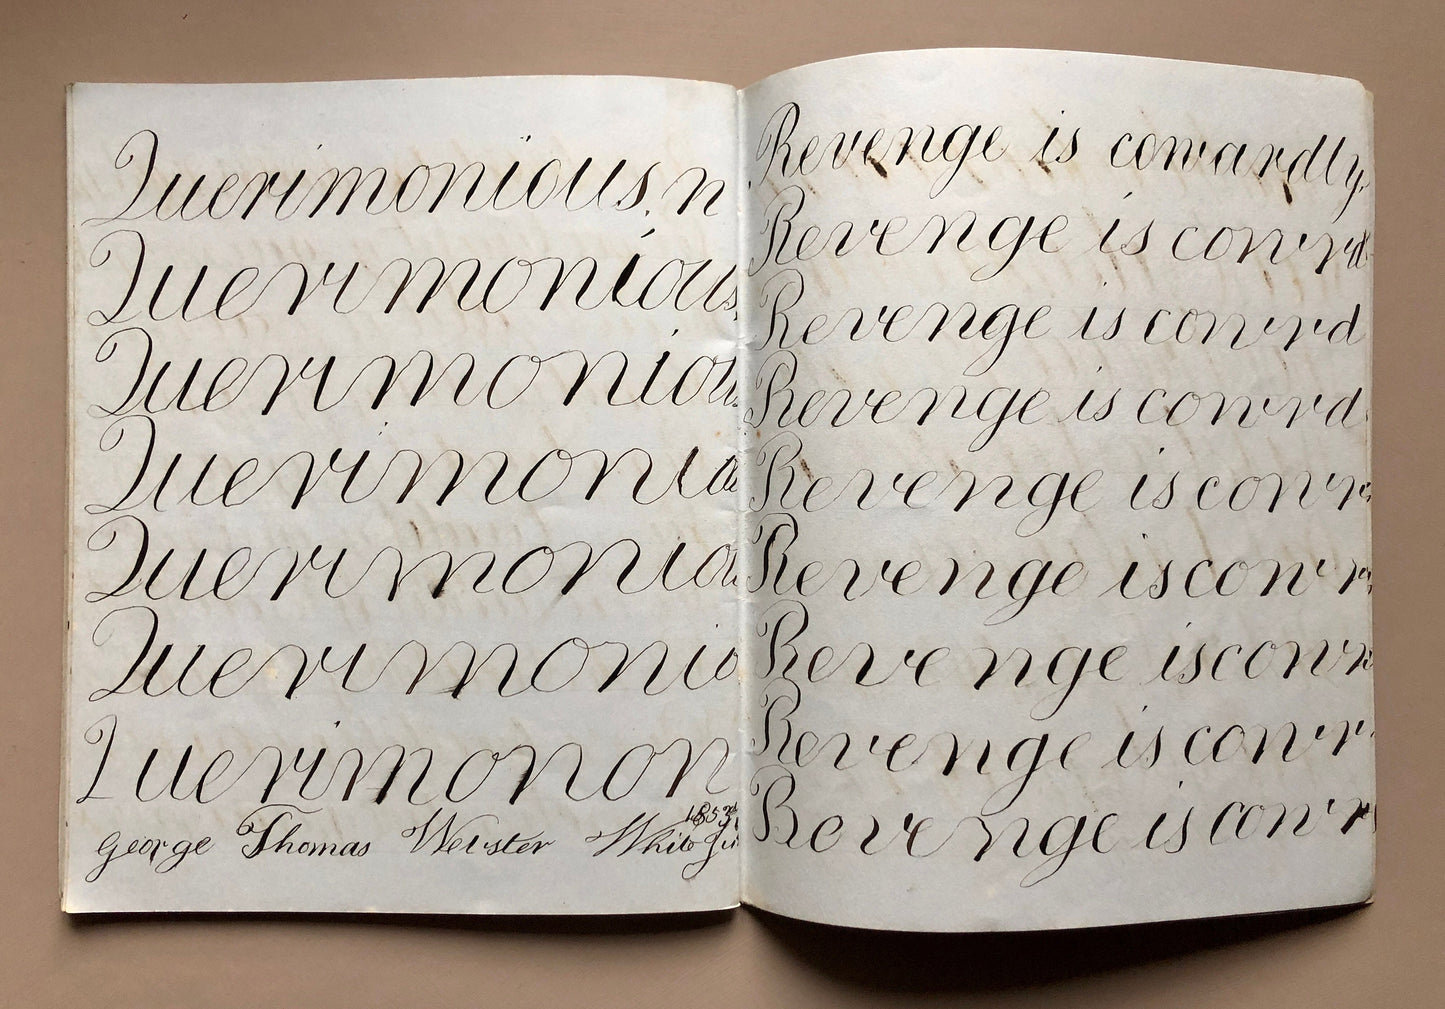 Querimonious, n
Querimonious,
Querimoniou
Querimonio
Querimonio
Querimonio
Querimonon
1853
George Thomas Webster White
Revenge is cowardly.
Revenge is cowrd
Revenge is cowrd
Revenge is cowrd
Revenge is cowr
Revenge is cowr
Revenge is cowr
Revenge is cowr
Revenge is cowr